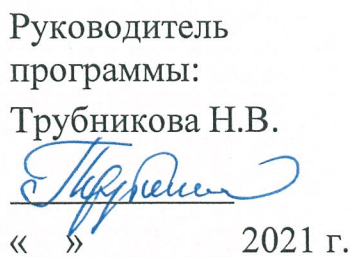 Руководитель
программы:
Трубникова Н.В.
« » 2021 г.